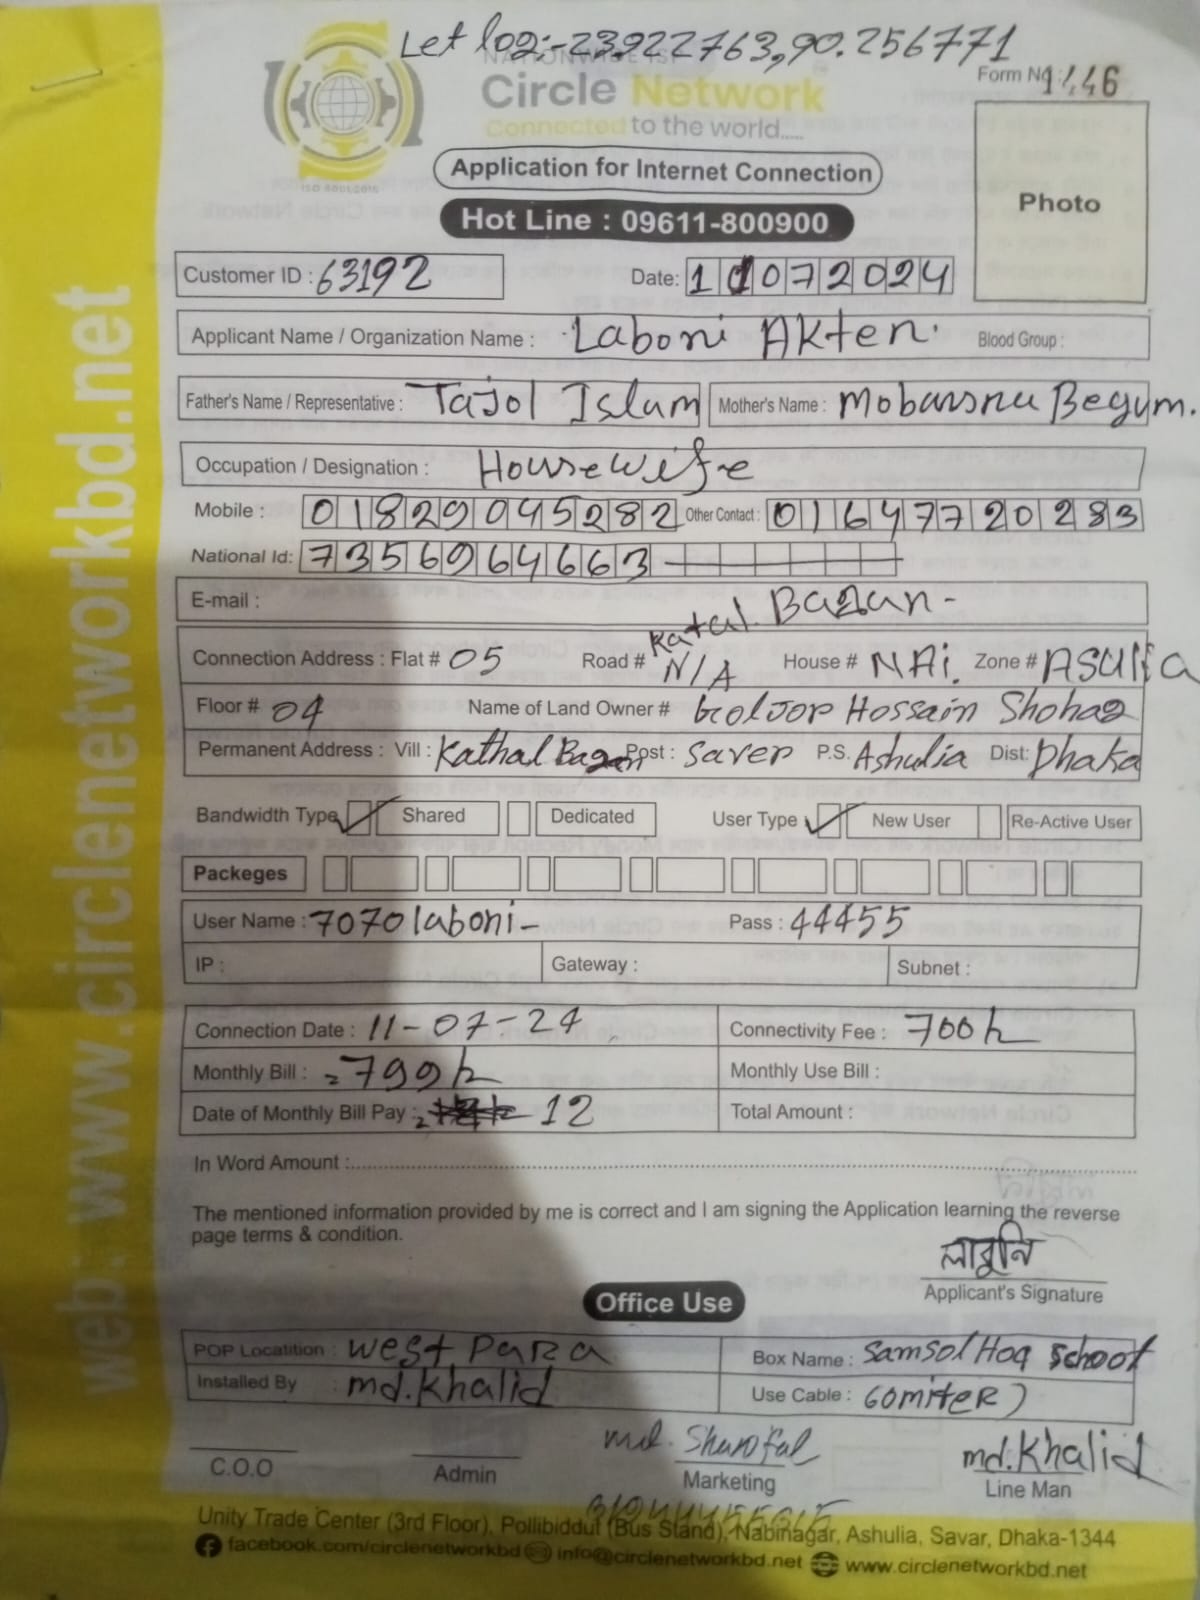 Let log:-23.922763,90.256771
NATIONWIDE ISP
Form No: 1446
Circle Network
Connected to the world.....
ISO 9001:2015
Application for Internet Connection
Photo
Hot Line : 09611-800900
Customer ID : 63192 Date: 11072024
Applicant Name / Organization Name : Laboni Akter. Blood Group :
Father's Name / Representative : Tajol Islam Mother's Name : Begum.
Occupation / Designation : Housewife
Mobile : 01829045282 Other Contact : 01647720283
National Id: 7356964663
E-mail :
Katal Bagan -
Connection Address : Flat # 05 Road # N/A House # NAi. Zone # ASuliA
Floor # 04 Name of Land Owner # Goljor Hossain Shohag
Permanent Address : Vill : Kathal Bagan Post : Saver P.S. Ashulia Dist: Dhaka
Bandwidth Type Shared Dedicated User Type New User Re-Active User
Packeges
User Name : 7070laboni- Pass : 44455
IP : Gateway : Subnet :
Connection Date : 11-07-24 Connectivity Fee : 700
Monthly Bill : 799 Monthly Use Bill :
Date of Monthly Bill Pay : 12 Total Amount :
In Word Amount :
The mentioned information provided by me is correct and I am signing the Application learning the reverse
page terms & condition.
লাবুনি
Applicant's Signature
Office Use
POP Locatition : West Para Box Name : Samsol Hoq School
Installed By : md.Khalid Use Cable : 60 miteR)
md. md.Khalid
C.O.O Admin Marketing Line Man
Unity Trade Center (3rd Floor), Pollibiddut (Bus Stand), Nabinagar, Ashulia, Savar, Dhaka-1344
facebook.com/circlenetworkbd info@circlenetworkbd.net www.circlenetworkbd.net
web: www.circlenetworkbd.net